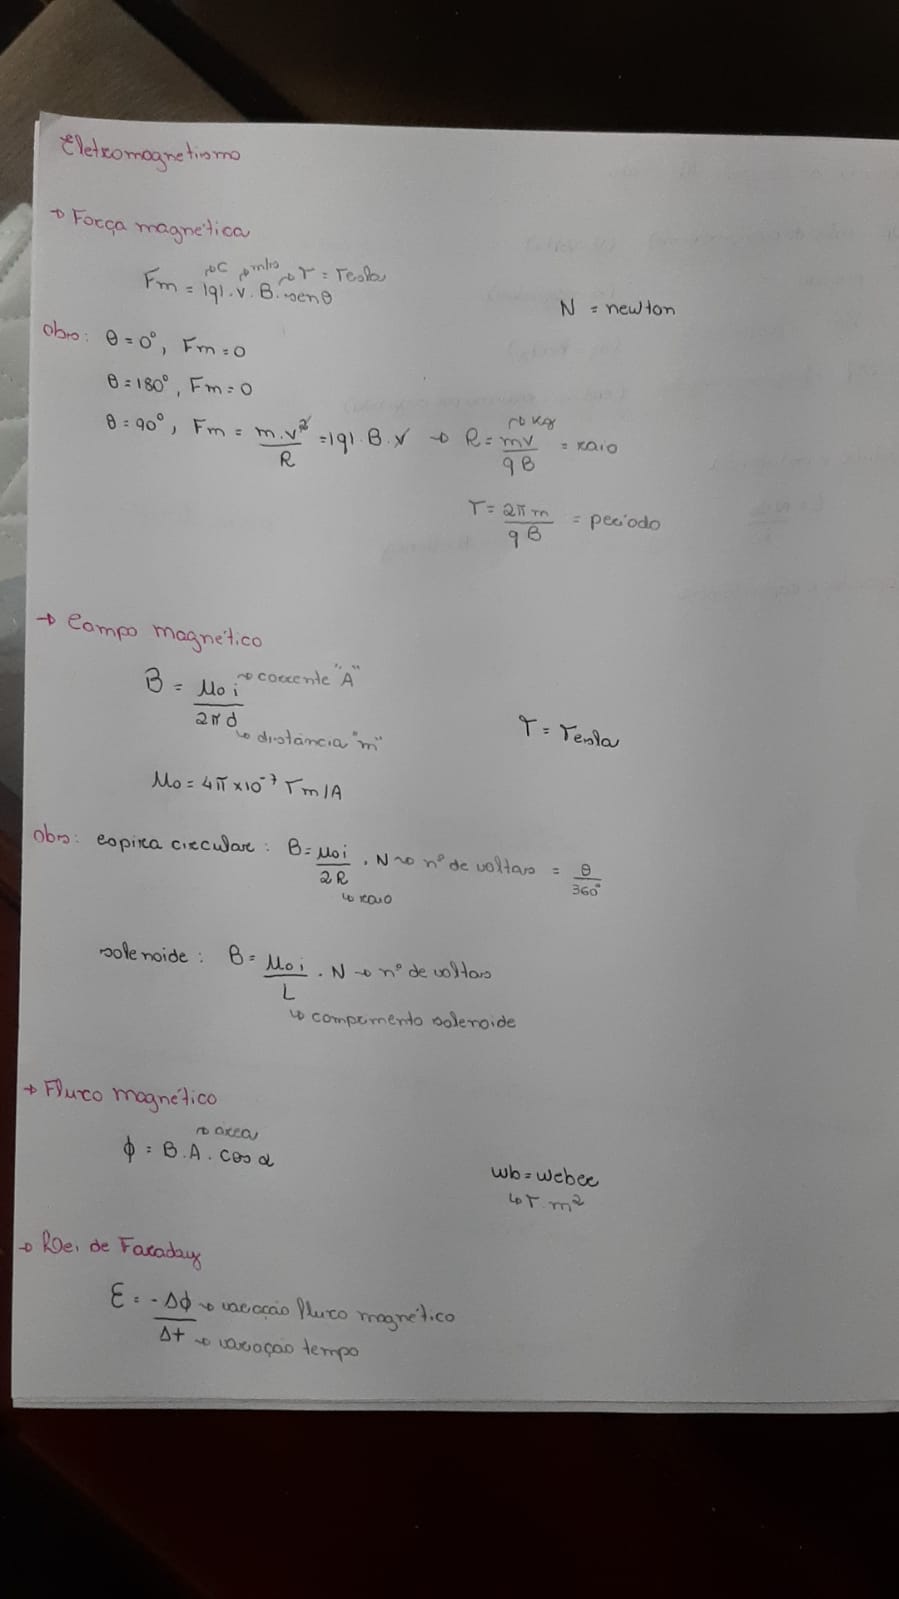 Eletromagnetismo
→ Força magnética
Fm = |q|.v.B.senθ
→C →m/s →T = Tesla
N = newton
obs: θ = 0°, Fm = 0
θ = 180°, Fm = 0
θ = 90°, Fm = m.v²/R = |q|.B.v → R = mv/qB = raio
→ kg
T = 2πm/qB = período
→ Campo magnético
B = μo i/2πd
→ corrente "A"
↳ distância "m"
T = Tesla
μo = 4π x10⁻⁷ Tm/A
obs: espira circular: B = μoi/2R . N → n° de voltas = θ/360°
↳ raio
solenoide: B = μoi/L . N → n° de voltas
↳ comprimento solenoide
→ Fluxo magnético
→ área
ϕ = B.A. cosα
wb = weber
↳ T.m²
→ Lei de Faraday
ε = -Δϕ → variação fluxo magnético
Δt → variação tempo